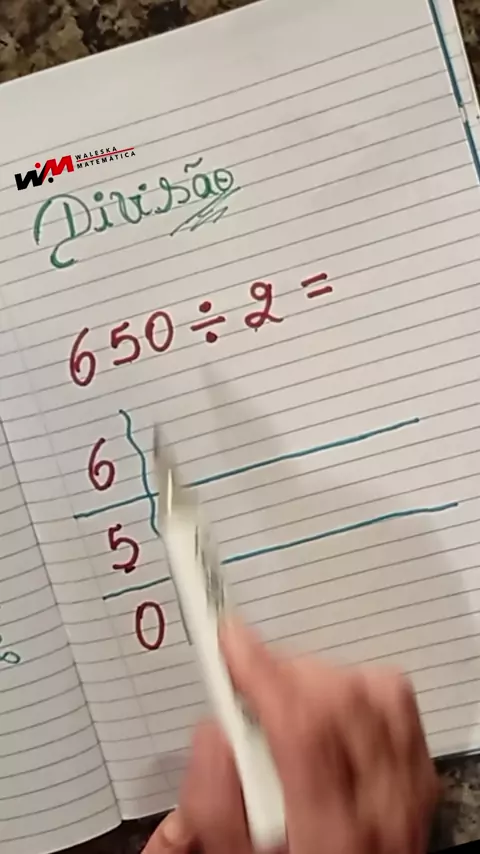 WM WALESKA
MATEMÁTICA
Divisão
650 ÷ 2 =
6
5
0